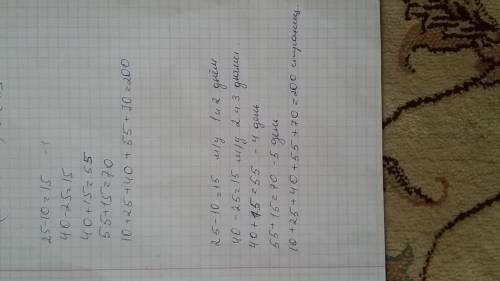 25-10=15 -1
40-25=15
40+15=55
55+15=70
10+25+40+55+70=200
25-10=15 м/у 1 и 2 днём
40-25=15 м/у 2 и 3 днями
40+15=55 - 4 день
55+15=70 - 5 день
10+25+40+55+70=200 страниц